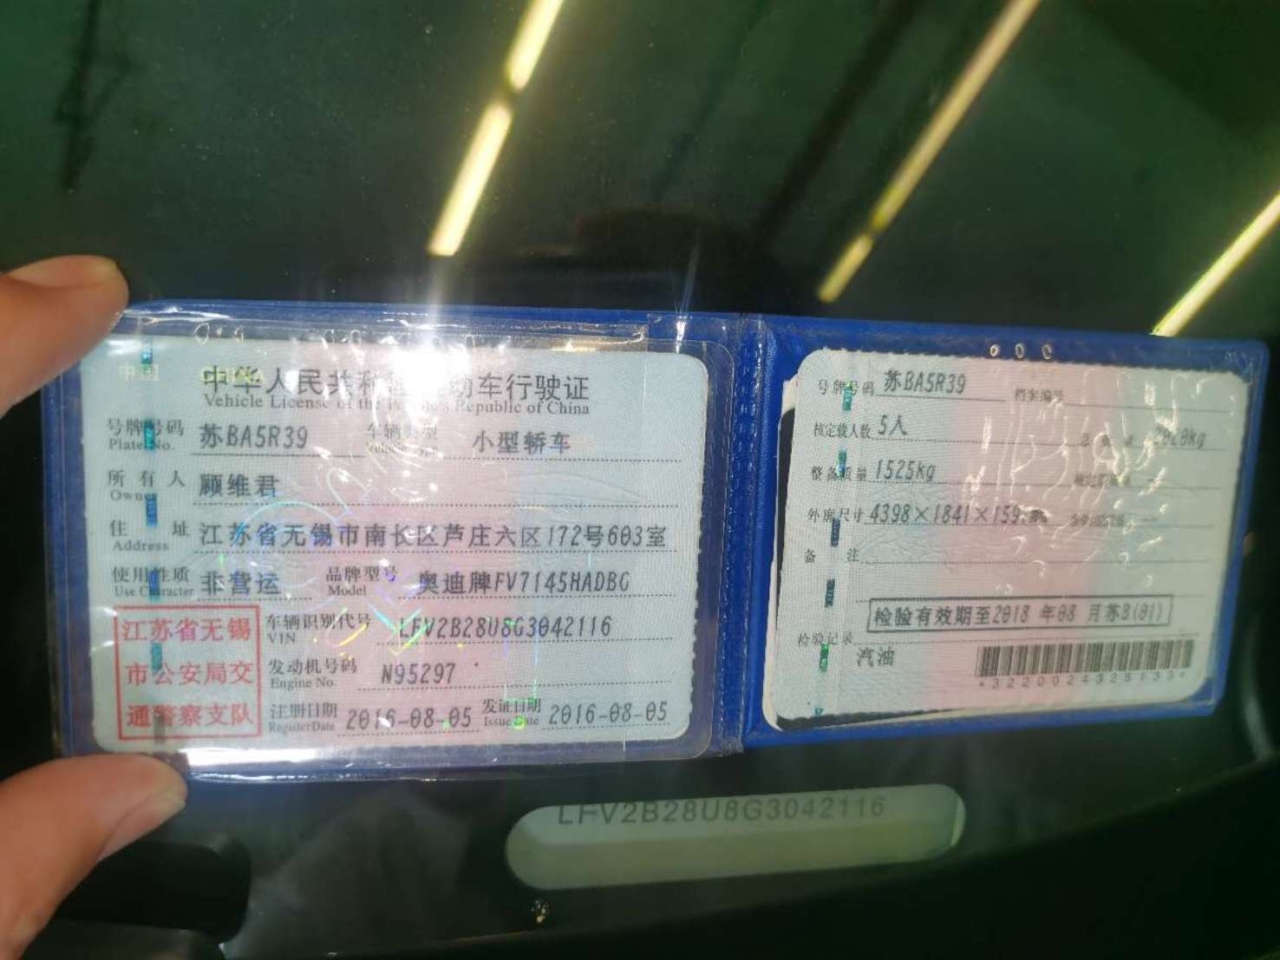 中国 CHINA
中华人民共和国机动车行驶证
Vehicle License of the People's Republic of China
号牌号码 苏BA5R39 车辆类型 小型轿车
Plate No. Vehicle Type
所有人 顾维君
Owner
住址 江苏省无锡市南长区芦庄六区172号603室
Address
使用性质 非营运 品牌型号 奥迪牌FV7145HADBG
Use Character Model
江苏省无锡
市公安局交
通警察支队
车辆识别代号 LFV2B28U8G3042116
VIN
发动机号码 N95297
Engine No.
注册日期 2016-08-05 发证日期 2016-08-05
Register Date Issue Date
号牌号码 苏BA5R39 档案编号
核定载人数 5人
整备质量 1525kg
外廓尺寸 4398×1841×159
备注
检验有效期至2018 年08 月苏B(01)
检验记录
汽油
LFV2B28U8G3042116